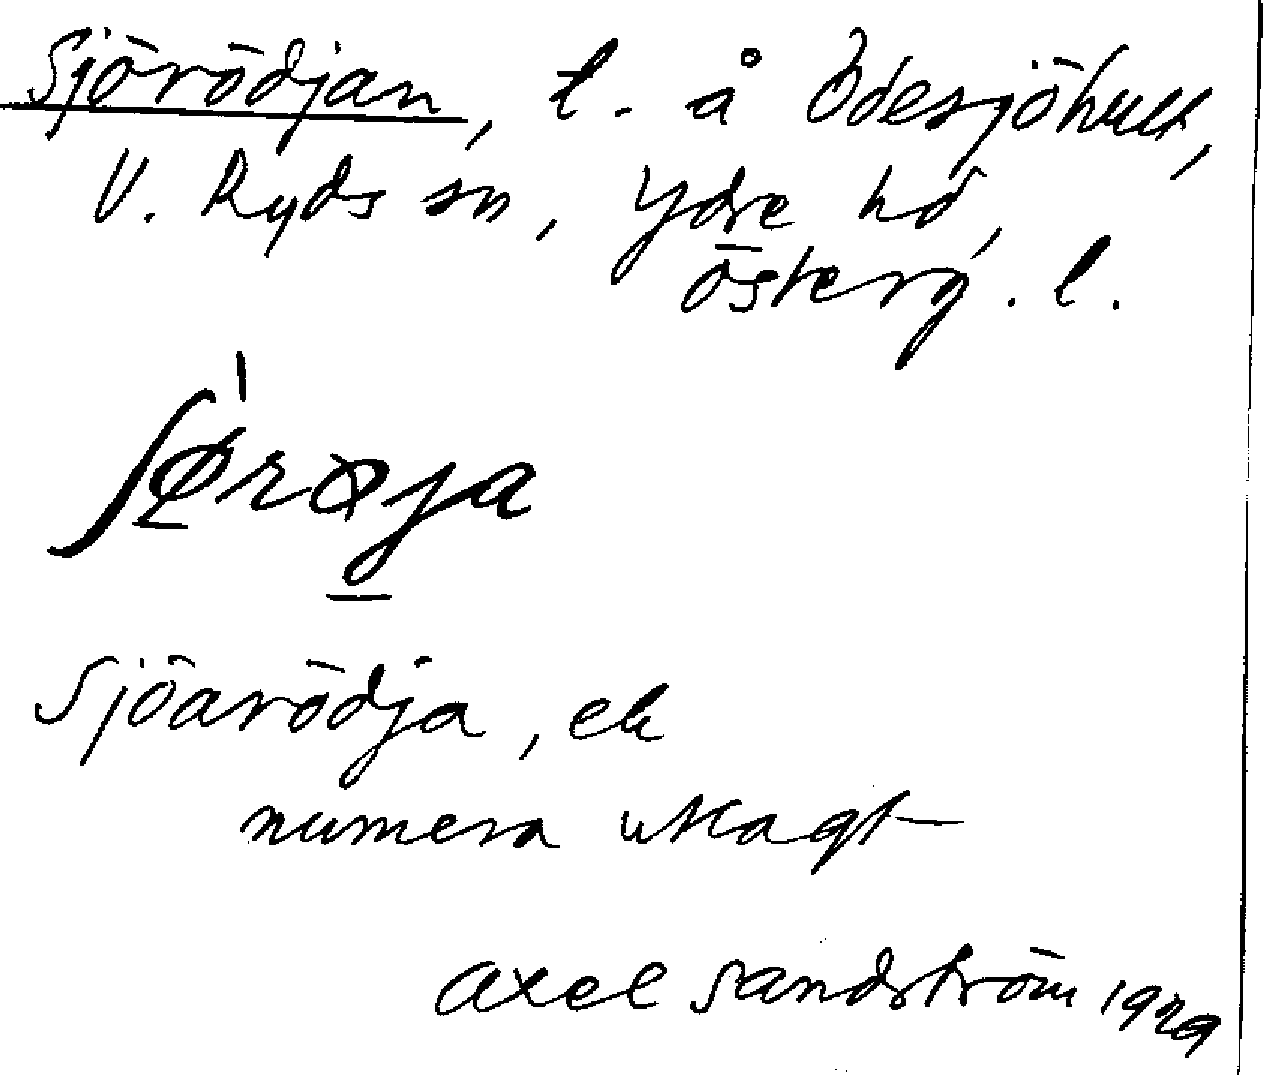 Sjörödjan, t. å Ödesjöhult,
V. Ryds sn, Ydre hd,
Österg. l.
Sjöarödja, ek
numera uttagt
Axel Sandström 1929